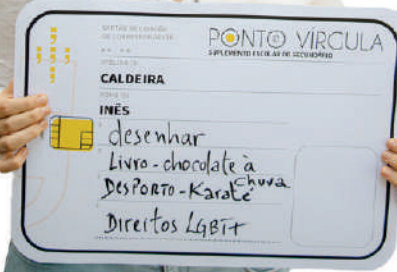 PONTO VÍRGULA
SUPLEMENTO ESCOLAR DE SECUNDÁRIO
CALDEIRA
INÊS
desenhar
Livro - chocolate à
chuva
DESPORTO - Karaté
Direitos LGBTI+